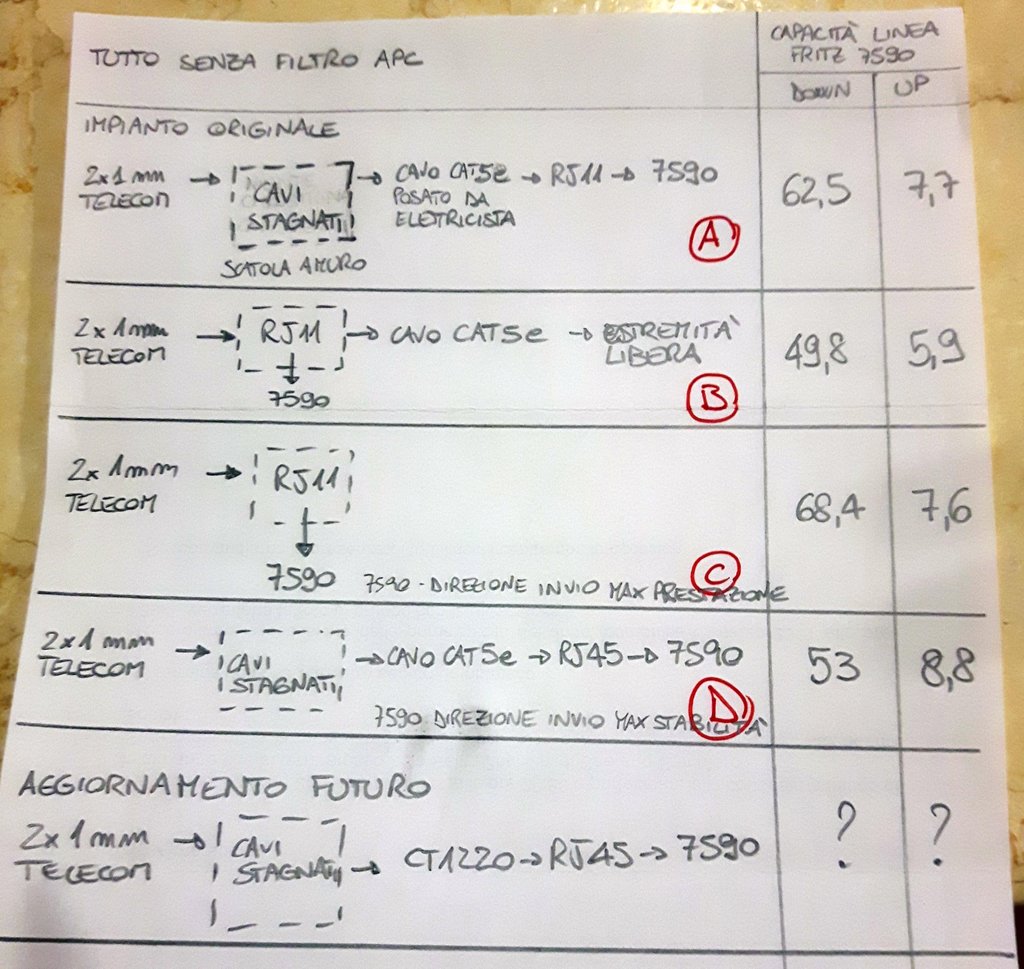 TUTTO SENZA FILTRO APC
CAPACITÀ LINEA
FRITZ 7590
DOWN UP
IMPIANTO ORIGINALE
2x1mm TELECOM → CAVI STAGNATI → CAVO CAT5e → RJ11 → 7590 62,5 7,7
POSATO DA
ELETRICISTA
SCATOLA A MURO
A
2x1mm TELECOM → RJ11 → CAVO CAT5e → ESTREMITÀ LIBERA 49,8 5,9
7590
B
2x1mm TELECOM → RJ11 68,4 7,6
7590
C
7590 - DIREZIONE INVIO MAX PRESTAZIONE
2x1mm TELECOM → CAVI STAGNATI → CAVO CAT5e → RJ45 → 7590 53 8,8
D
7590 DIREZIONE INVIO MAX STABILITÀ
AGGIORNAMENTO FUTURO
2x1mm TELECOM → CAVI STAGNATI → CT1220 → RJ45 → 7590 ? ?